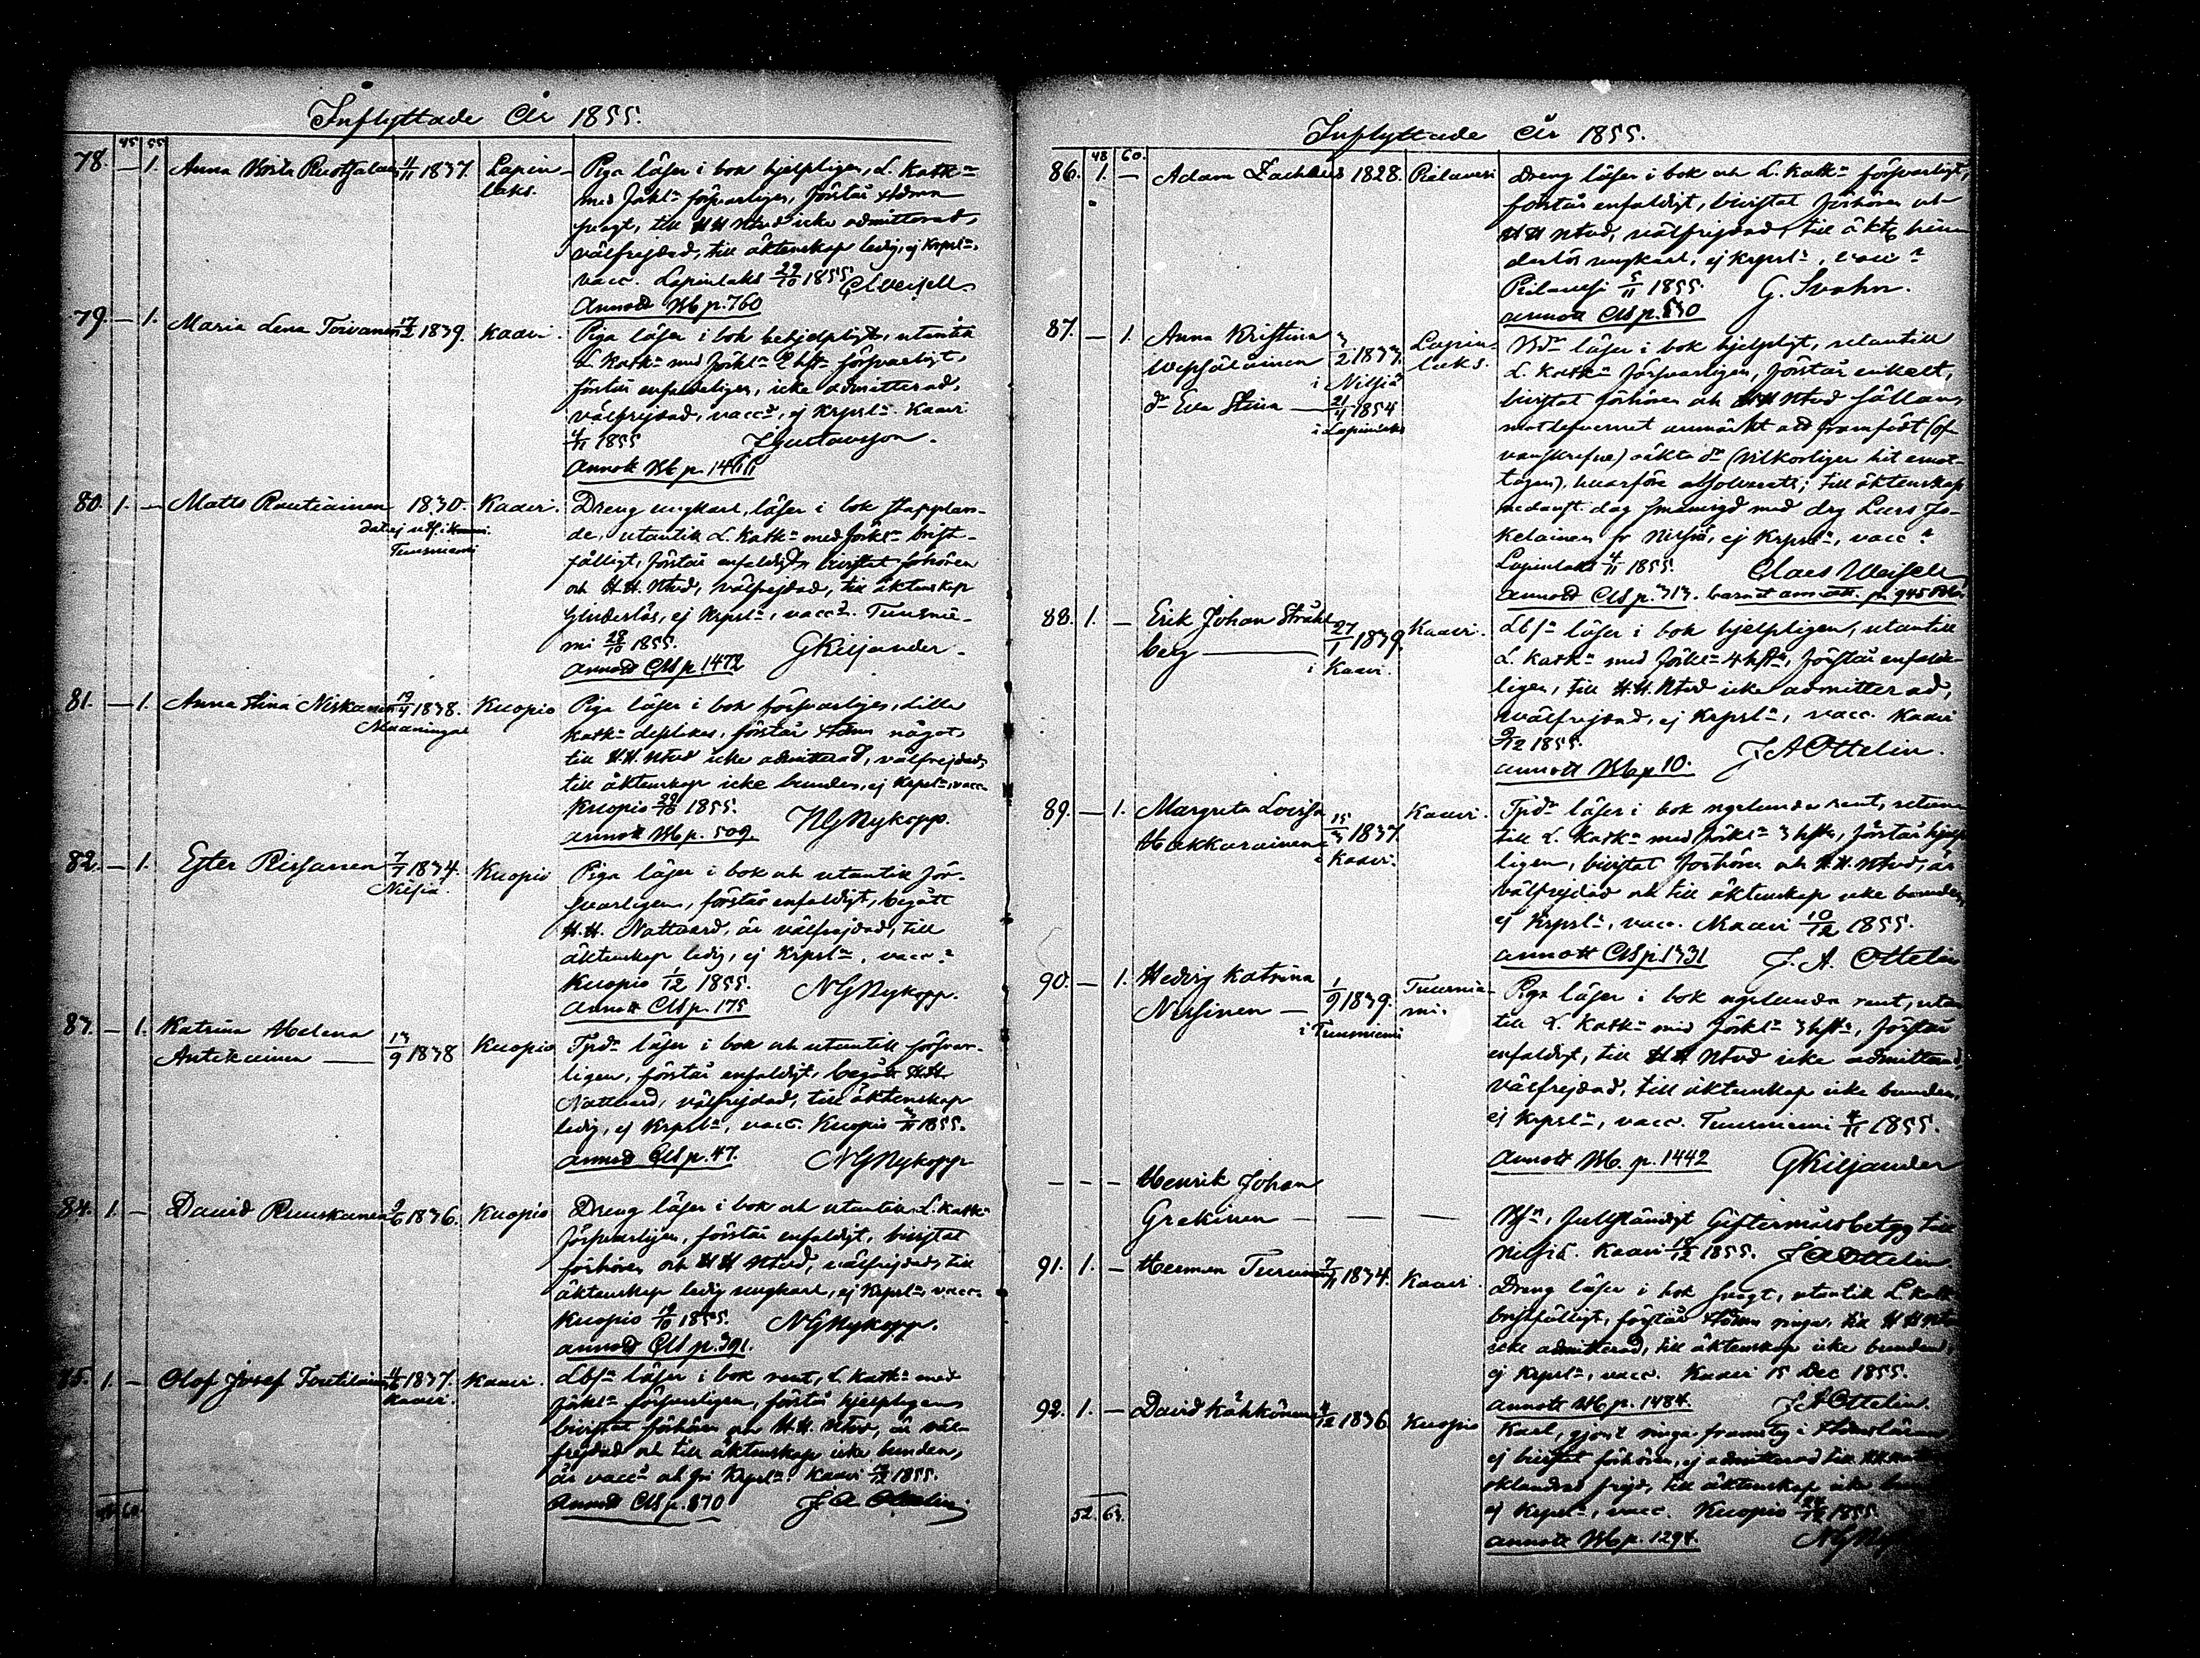 Inflyttade År 1855.
45 55
78. — 1. Anna Brita Rustgalen 4/11 1837. Lapin-
laks.
Piga läser i bok hjelpligen, L. Katk:n
med Förkl:n försvarligen, förstår
svagt, till H H Nttvd icke admitterad,
välfrejdad, till äktenskap ledig, ej Krpsl:n,
vacc. Lapinlaks 29/10 1855
Annott Bb p. 760
79. — 1. Maria Lena Toivanen 17/2 1839. Kaavi.
Piga läser i bok behjelpligt, utantill
L. Katk:n med Förkl:n 2 hft:n försvarligt,
förstår enfaldeligen, icke admitterad,
välfrejdad, vacc:d, ej Krpsl:n Kaavi
4/11 1855 Gustavsson.
Annott Bb p.
80. 1. — Matts Rautiainen 1830. Kaavi.
Tuusniemi
Dreng ungkarl, läser i bok stapplan-
de, utantill L. Katk:n med Förkl:n brist-
fälligt, förstår enfaldigt, bivistat förhören
och H. H. Nttvd, välfrejdad, till äktenskap
hinderlös, ej Krpsl:n, vacc:d. Tuusnie-
mi 28/10 1855. GKiljander.
Annott Cb p. 1472
81. — 1. Anna Stina Niskanen 19/4 1838. Kuopio
Maaninga
Piga läser i bok försvarligen, Lilla
Katk:n deslikes, förstår något,
till H. H. Nttvd icke admitterad, välfrejdad,
till äktenskap icke bunden, ej Krpsl:n, vacc.
Kuopio 29/10 1855.
Annott Bb p. 509. NGNykopp.
82. — 1. Ester Rissanen 7/7 1834. Kuopio
Nilsiä.
Piga läser i bok och utantill för-
svarligen, förstår enfaldigt, begått
H. H. Nattvard, är välfrejdad, till
äktenskap ledig, ej Krpsl:n, vacc:d
Kuopio 1/12 1855. NGNykopp.
Annott Cb p. 175
83. — 1. Katrina Helena
Antikainen — 13/9 1838 Kuopio
Tpd:r läser i bok och utantill försvar-
ligen, förstår enfaldigt, begått H. H.
Nattvard, välfrejdad, till äktenskap
ledig, ej Krpsl:n, vacc. Kuopio 3/11 1855.
Annott Cb p. 47. NGNykopp
84. 1. — David Ruuskanen 9/6 1836. Kuopio
Dreng läser i bok och utantill L. Katk:n
försvarligen, förstår enfaldigt, bivistat
förhören och H H Nttvd, välfrejdad, till
äktenskap ledig ungkarl, ej Krpsl:n, vacc.
Kuopio 19/10 1855. NGNykopp.
Annott Cb p. 391.
85. 1. — Olof Josef 1837. Kaavi.
Kaavi.
Lbs:n läser i bok rent, L. Katk:n med
Förkl:n försvarligen, förstår hjelpligen,
bivistat förhören och H. H. Nttvd, är väl-
frejdad och till äktenskap icke bunden,
är vacc:d och fri Krpsl:n. Kaavi 1855.
Annott Cb p. 870 J. A. Ottelin.
Inflyttade År 1855.
48 60.
86. 1. — Adam Zachæus 1828. Pielavesi
Dreng läser i bok och L. Katk:n försvarligt,
förstår enfaldigt, bivistat förhören och
H H Nttvd, välfrejdad, till äkt:p hin-
derlös ungkarl, ej Krpsl:n, vacc:d
Pielavesi 5/11 1855. G. Svahn.
Annott Cb p.
87. — 1. Anna Kristina
Wepsäläinen 3/2 1833. Lapin-
i Nilsiä laks.
d:r Eva Stina — 21/4 1854
i Lapinlaks
läser i bok hjelpligt, utantill
L. Katk:n försvarligen, förstår enkelt,
bivistat förhören och H H Nttvd
anmärkt att framfödt (of-
vanskrefne) oäkta d:r
tagen), hvarföre absolverats; till äktenskap
medelst dag med drg Lars Jo-
kelainen fr Nilsiä, ej Krpsl:n, vacc:d
Lapinlaks 4/11 1855. Claes Weisell
Annott Cb p. 313. barnet annott. p. 945
88. 1. — Erik Johan Stråhl-
berg — 27/1 1839. Kaavi.
i Kaavi.
Lbs:n läser i bok hjelpligen, utantill
L. Katk:n med Förkl:n 4 hft:n, förstår enfalde-
ligen, till H. H. Nttvd icke admitterad,
välfrejdad, ej Krpsl:n, vacc. Kaavi
9/12 1855. J A Ottelin.
Annott Bb p. 10.
89. — 1. Margreta Lovisa
Hakkarainen 15/3 1837. Kaavi.
i Kaavi.
Tpd:r läser i bok någorlunda rent, utan-
till L. Katk:n med Förkl:n 3 hft:n, förstår hjelp-
ligen, bivistat förhören och H. H. Nttvd, är
välfrejdad och till äktenskap icke bunden,
ej Krpsl:n, vacc. Kaavi 10/12 1855.
Annott Cb p. 1331 J. A. Ottelin
90. — 1. Hedvig Katrina
Nissinen — 1/9 1839. Tuusnie-
i Tuusniemi mi.
Piga läser i bok någorlunda rent, utan-
till L. Katk:n med Förkl:n 3 hft:n, förstår
enfaldigt, till H H Nttvd icke admitterad,
välfrejdad, till äktenskap icke bunden,
ej Krpsl:n, vacc. Tuusniemi 4/11 1855.
Annott Bb. p. 1442 GKiljander
— — — Henrik Johan
Grekinen — — —
Bs:n, fullständigt Giftermålsbetyg till
Nilsiä. Kaavi 1855. J A Ottelin
91. 1. — Herman Turunen 7/11 1834. Kaavi.
Dreng läser i bok svagt, utantill L. Katk:n
bristfälligt, förstår ringa, till H H Nttvd
icke admitterad, till äktenskap icke bunden,
ej Krpsl:n, vacc. Kaavi 15 Dec 1855.
Annott Bb p. 1484. J A Ottelin.
92. 1. — David Kähkönen 4/12 1836 Kuopio
Karl, gjort ringa framsteg i
ej bivistat förhören, ej admitterad till
oklandrad frejd, till äktenskap icke
ej Krpsl:n, vacc. Kuopio 1855.
Annott Bb p. 1294.
52. 63.